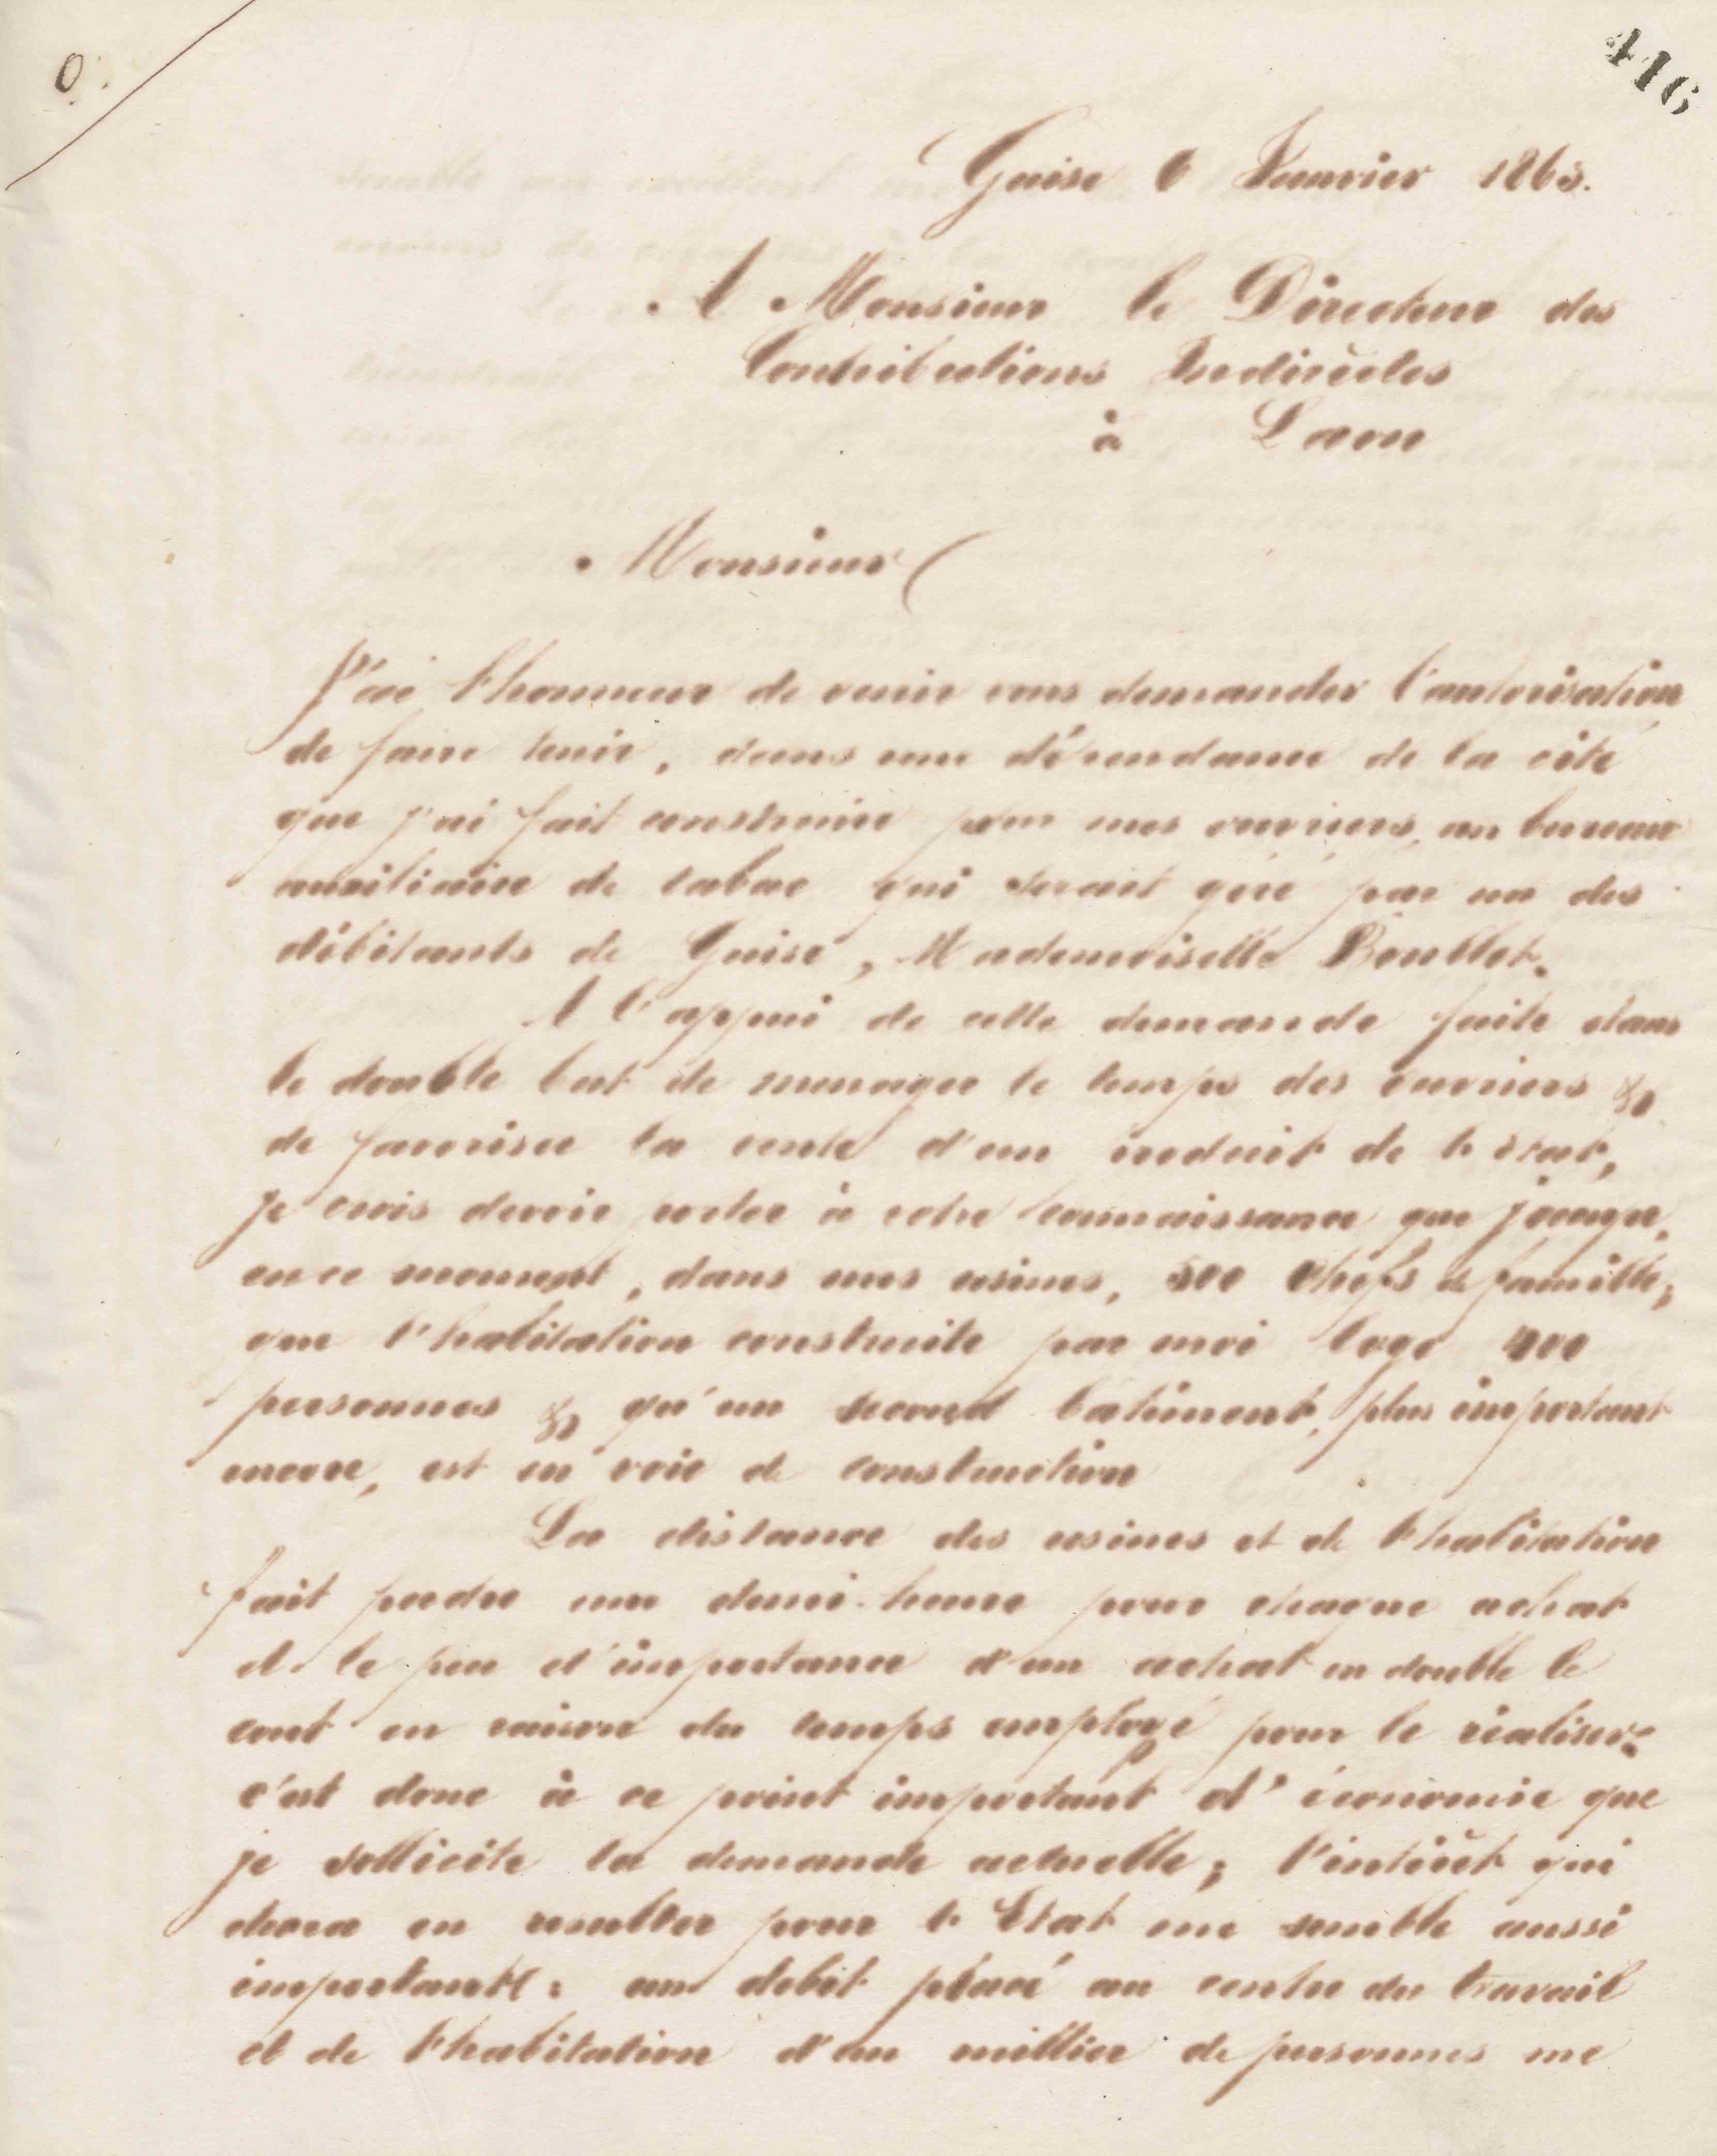 0.
416
Guise 6 Janvier 1863.
A Monsieur le Directeur des
Contributions Indirectes
à Laon
Monsieur
J'ai l'honneur de venir vous demander l'autorisation
de faire tenir, dans une dépendance de la cité
que j'ai fait construire pour mes ouvriers, un bureau
auxiliaire de tabac qui serait géré par un des
débitants de Guise, Mademoiselle
A l'appui de cette demande faite dans
le double but de menager le temps des ouvriers &
de favoriser la vente d'un produit de l'état,
je crois devoir porter à votre connaissance que j'occupe,
en ce moment, dans mes usines, 500 chefs de famille;
que l'habitation construite par moi loge
personnes & qu'un second bâtiment, plus important
encore, est en voie de construction
La distance des usines et de l'habitation
fait perdre une demi-heure pour chaque achat
et le peu d'importance d'un achat en double le
cout en raison du temps employé pour le réaliser.
c'est donc à ce point important d'économie que
je sollicite la demande actuelle; l'intérêt qui
devra en resulter pour l'Etat me semble aussi
important: un debit placé au centre du travail
et de l'habitation d'un millier de personnes me